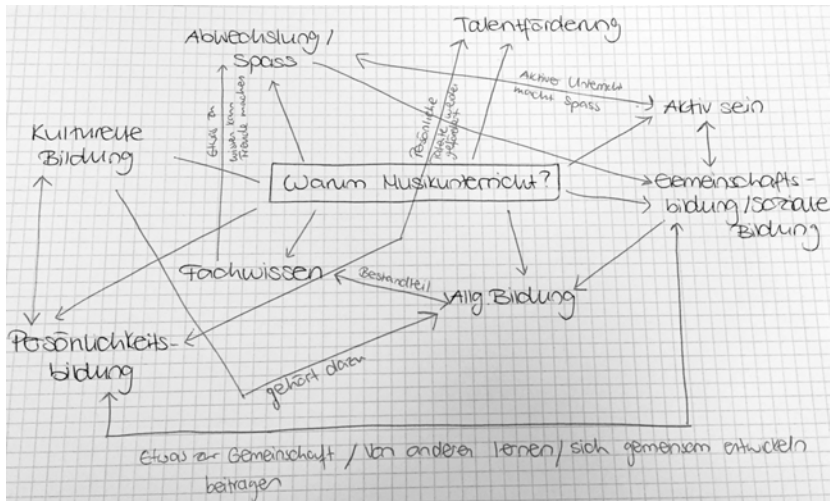 Abwechslung/
Spass
Talentförderung
Aktiver Unterricht
macht Spass
Aktiv sein
Kulturelle
Bildung
Etwas zu
wissen kann
Freude machen
Persönliche
Talente werden
gefördert
Warum Musikunterricht?
Gemeinschafts-
bildung/soziale
Bildung
Fachwissen
Bestandteil
Allg. Bildung
Persönlichkeits-
bildung
gehört dazu
Etwas zur Gemeinschaft / Von anderen lernen / sich gemeinsam entwickeln
beitragen